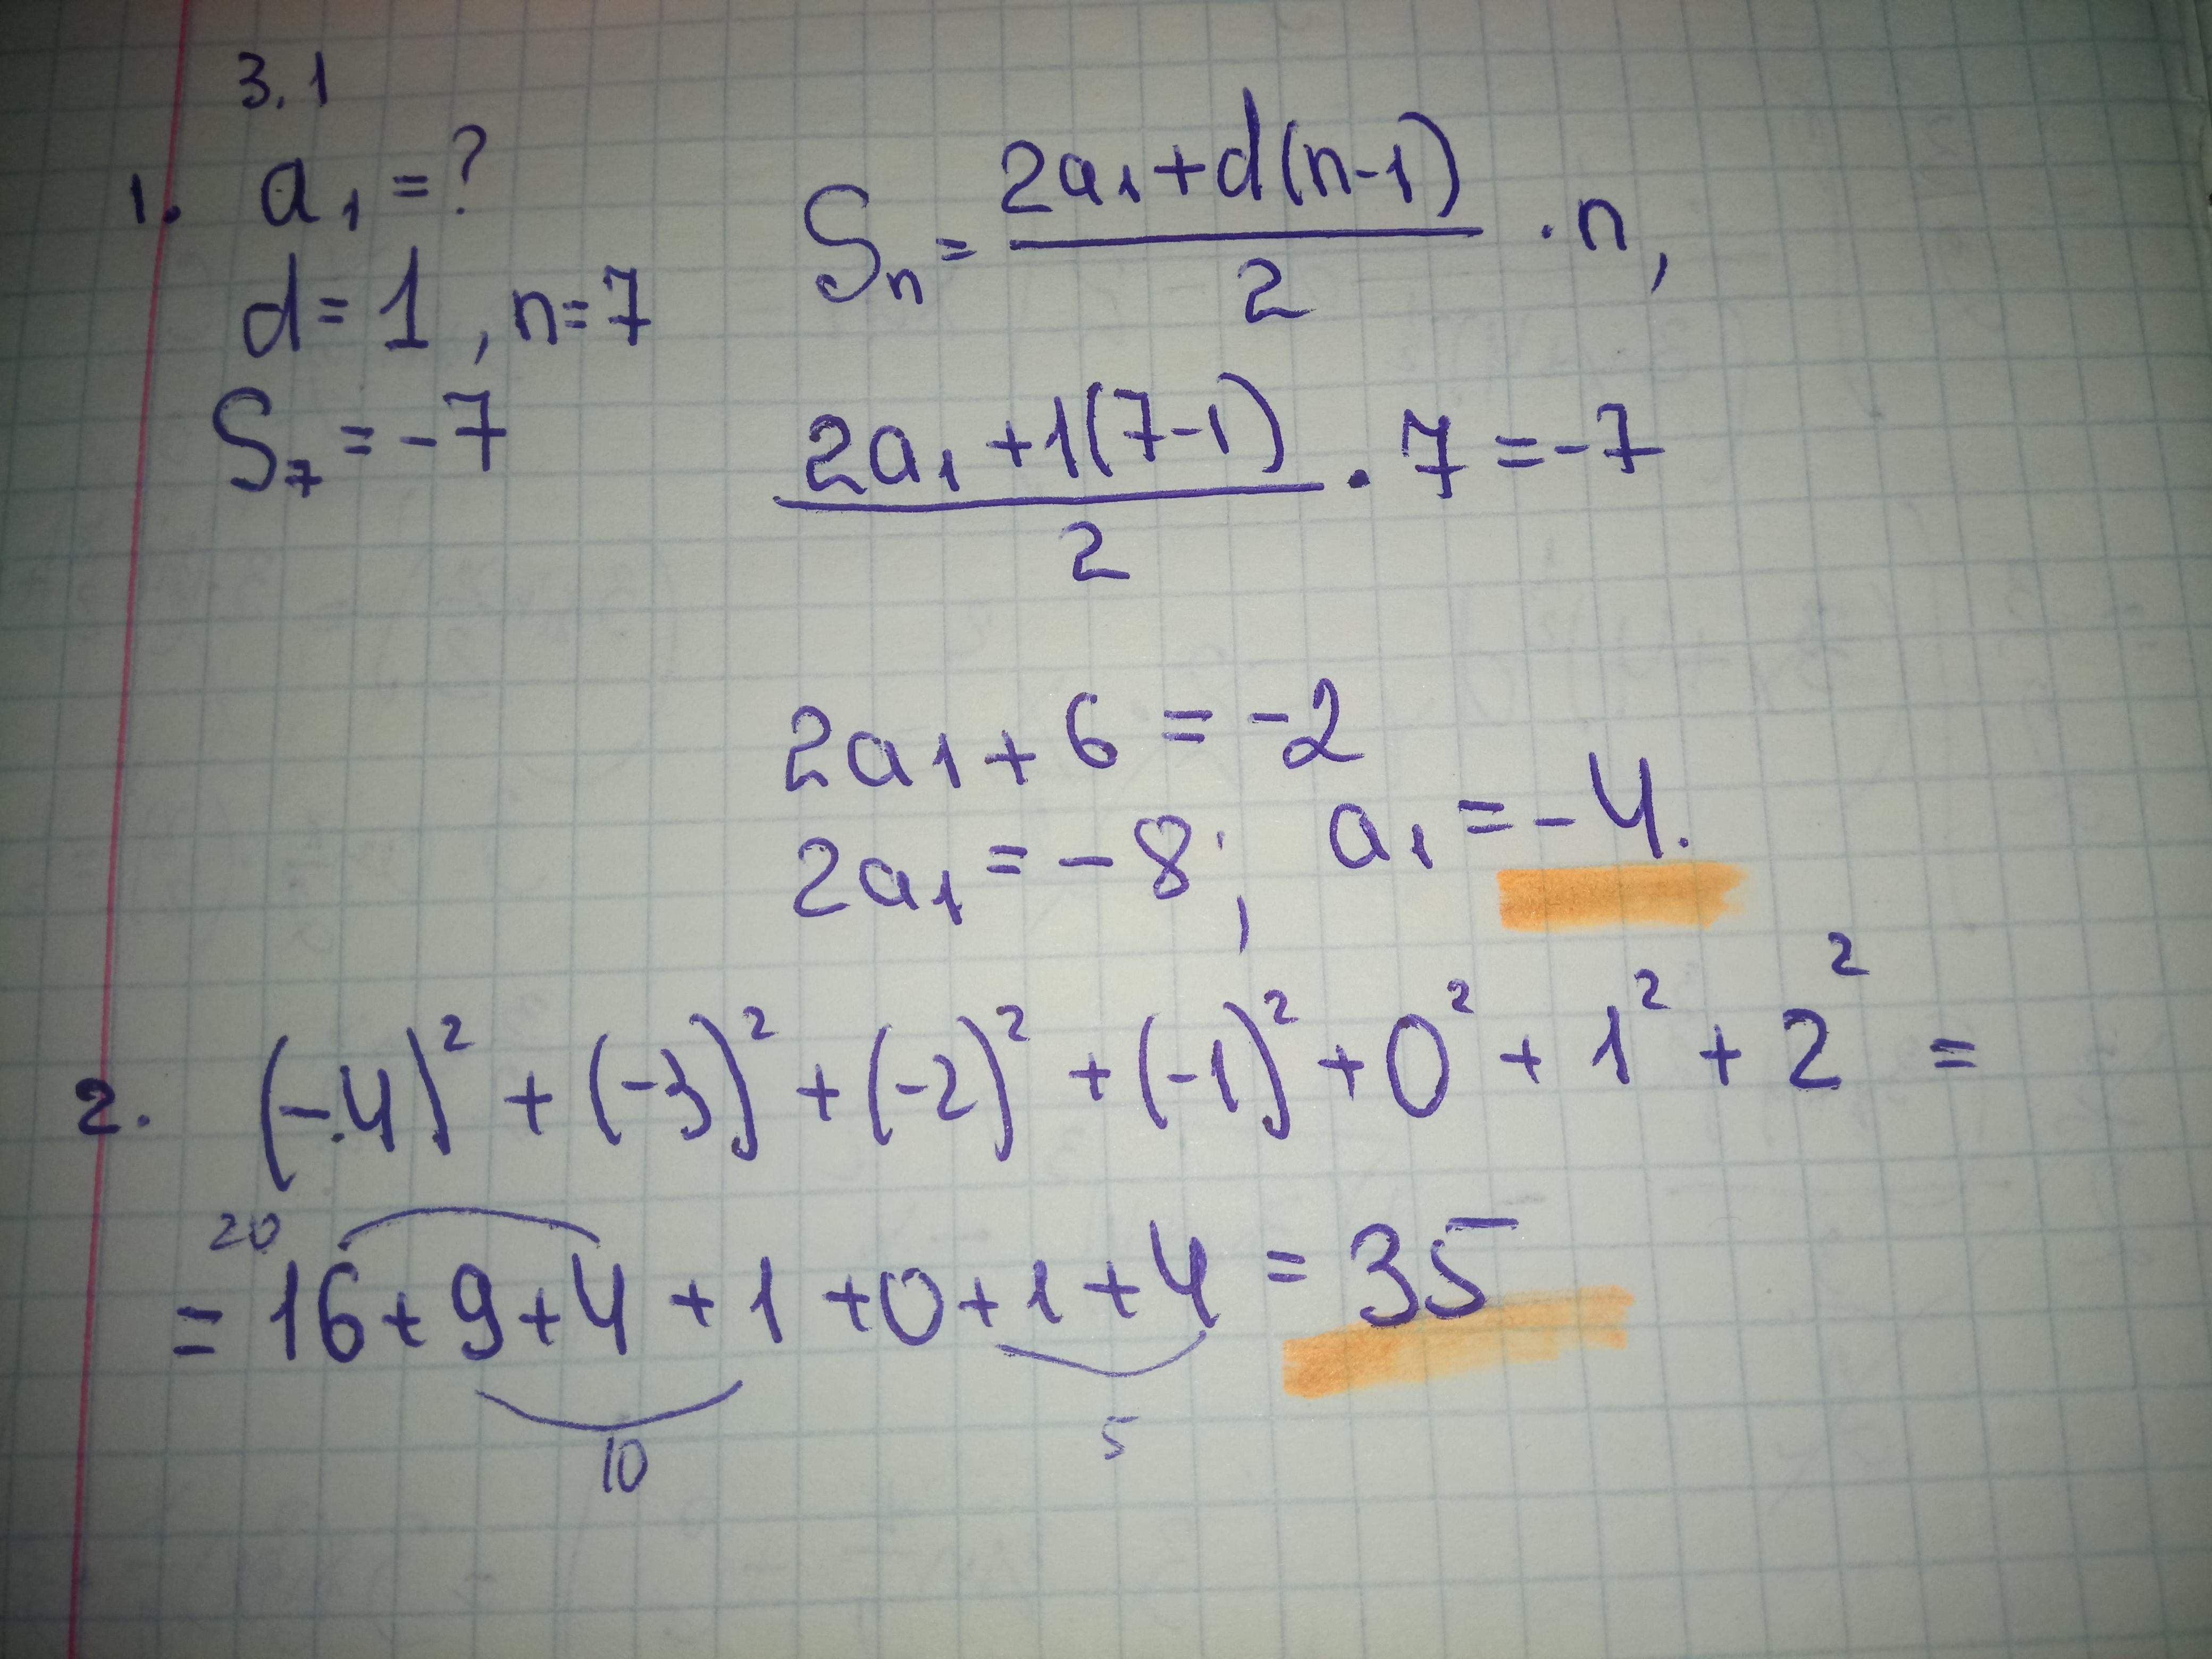 3.1
1. a₁ = ?
d = 1, n = 7
S₇ = -7
Sₙ = (2a₁ + d(n-1))/2 · n,
(2a₁ + 1(7-1))/2 · 7 = -7
2a₁ + 6 = -2
2a₁ = -8; a₁ = -4.
2. (-4)² + (-3)² + (-2)² + (-1)² + 0² + 1² + 2² =
20
= 16 + 9 + 4 + 1 + 0 + 1 + 4 = 35
10 5